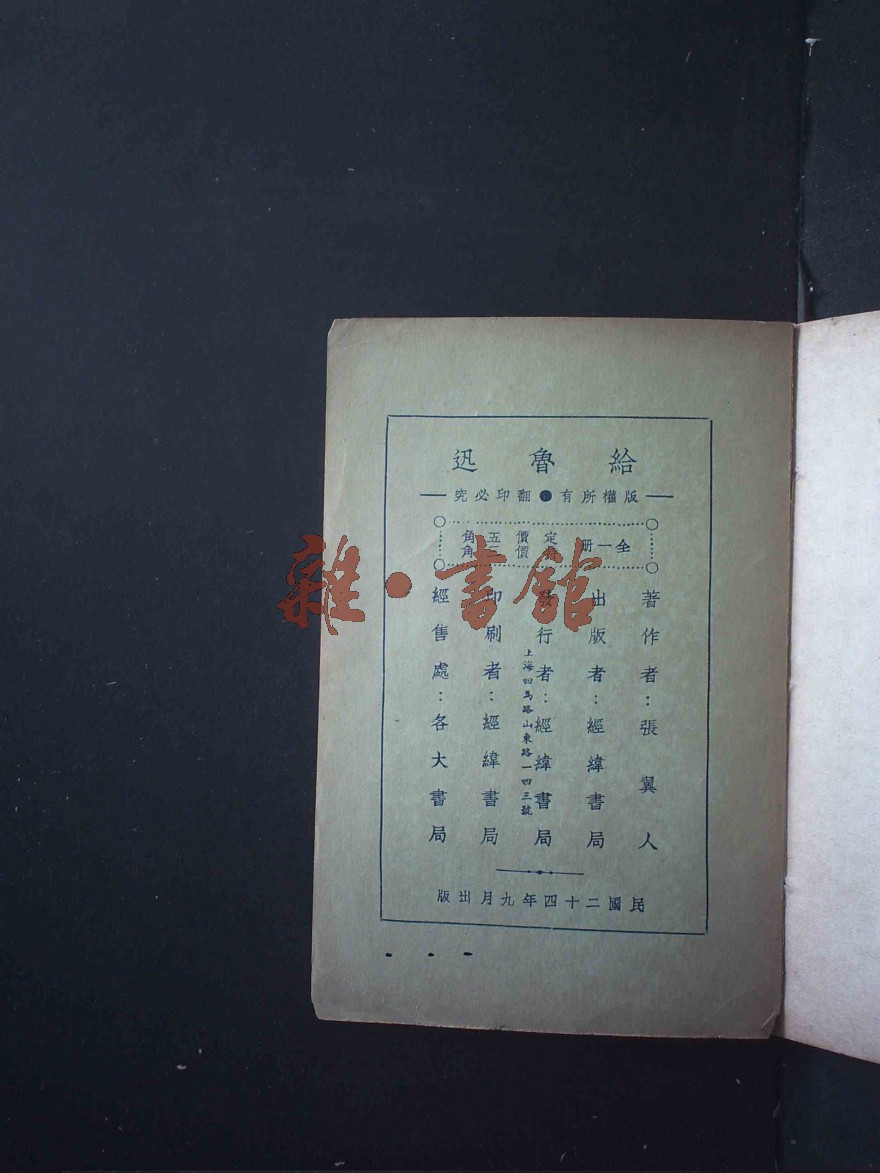 給魯迅
版權所有●翻印必究
全一冊
定價五角
價角
著作者：張翼人
出版者：經緯書局
發行者：經緯書局
上海四馬路山東路一四三號
印刷者：經緯書局
經售處：各大書局
民國二十四年九月出版
雜·書館